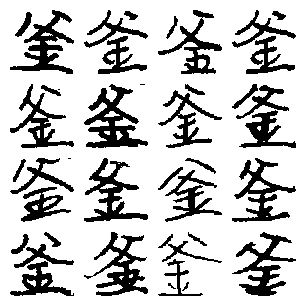 釜釜釜釜
釜釜釜釜
釜釜釜釜
釜釜釜釜